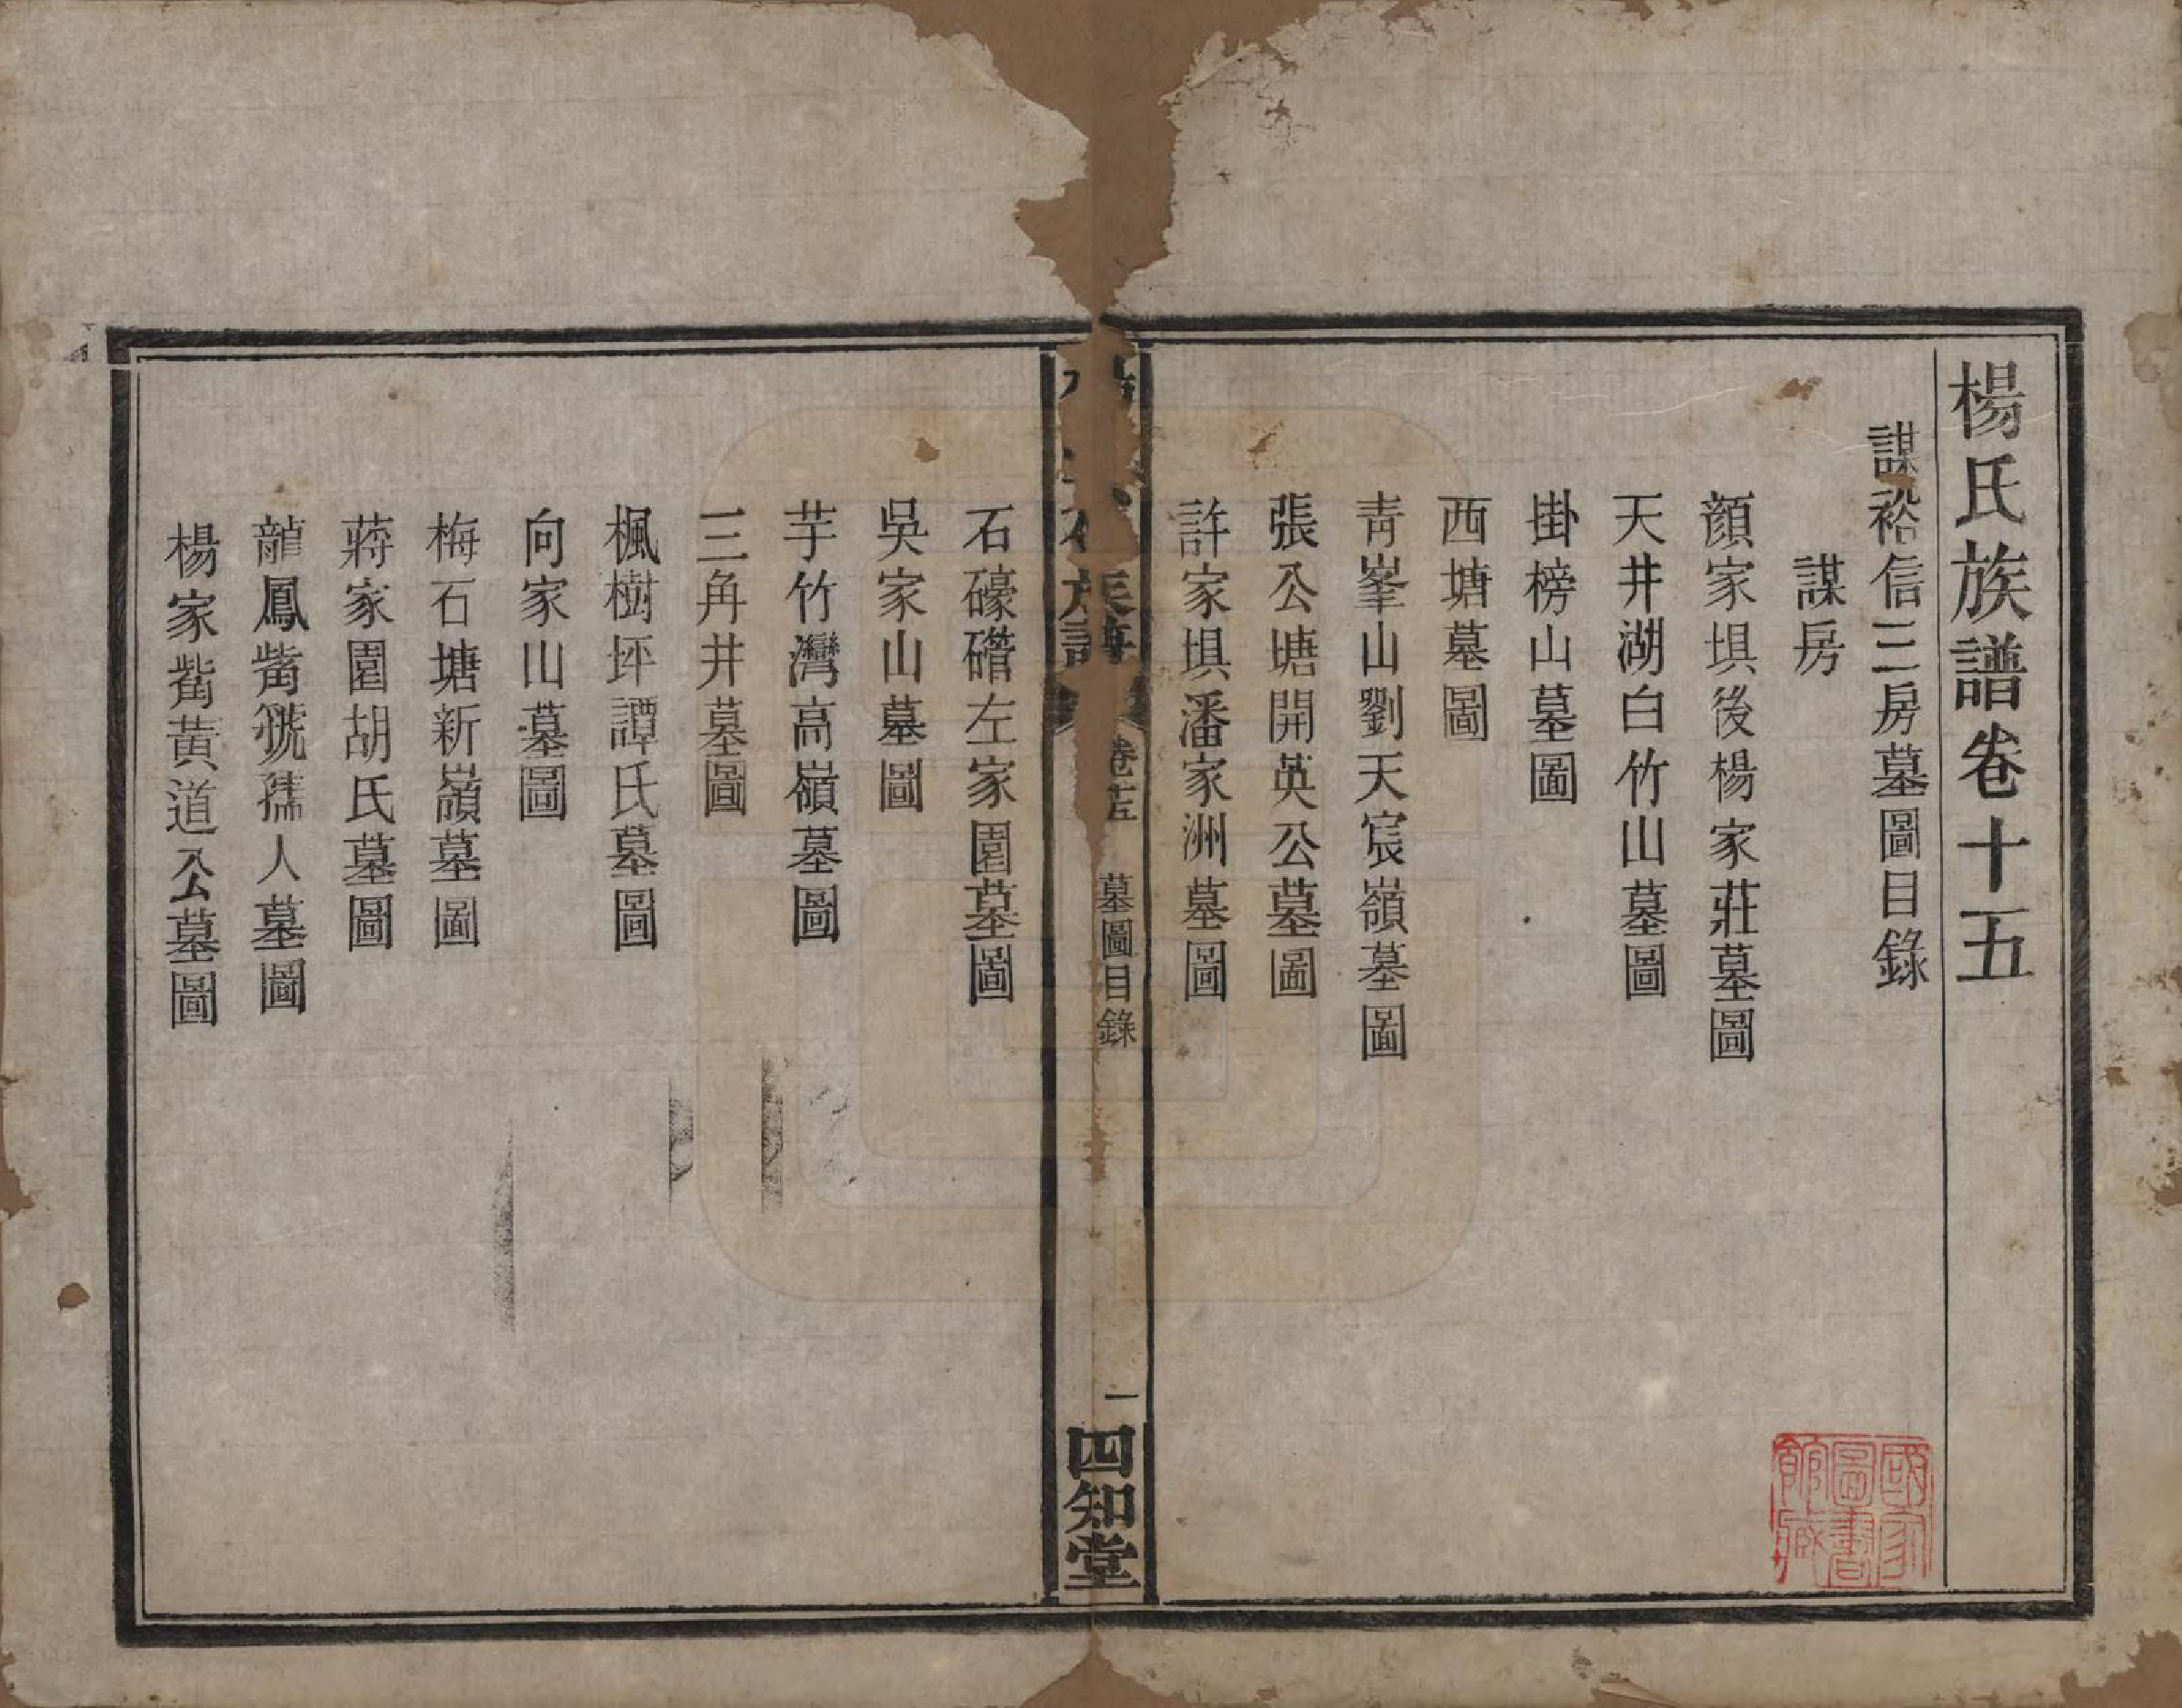 楊氏族譜卷十五
謀裕信三房墓圖目錄
謀房
顏家埧後楊家莊墓圖
天井湖白竹山墓圖
掛榜山墓圖
西塘墓圖
青峯山劉天宸嶺墓圖
張公塘開英公墓圖
許家埧潘家洲墓圖
族譜
卷十五
墓圖目錄
一
四知堂
石礞磛左家園墓圖
吳家山墓圖
芋竹灣高嶺墓圖
三角井墓圖
楓樹坪譚氏墓圖
向家山墓圖
梅石塘新嶺墓圖
蔣家園胡氏墓圖
龍鳳觜號孺人墓圖
楊家觜黃道公墓圖
國家圖書館藏